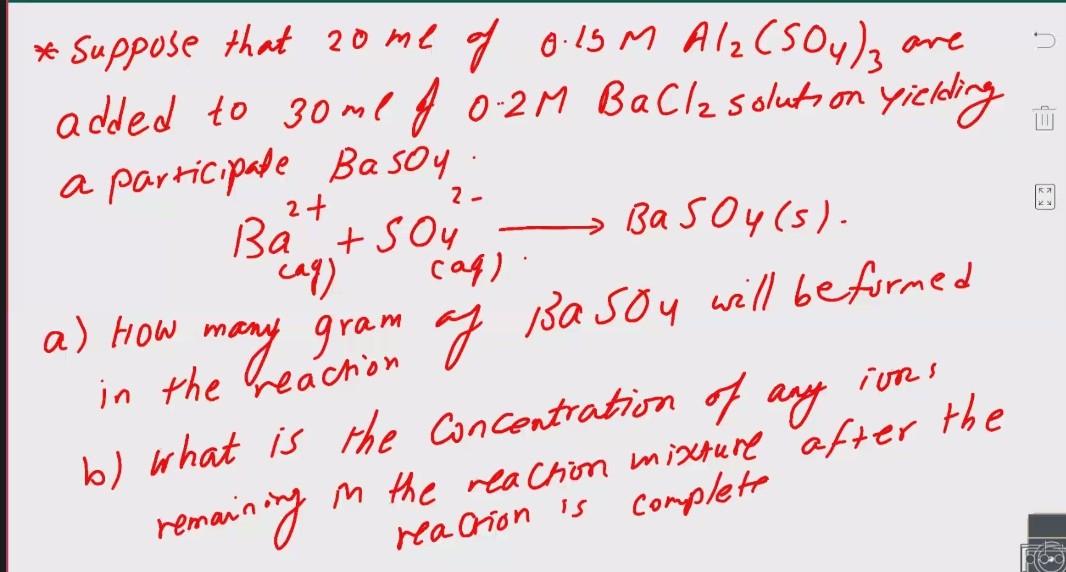 * Suppose that 20 ml of 0.15 M Al₂(SO₄)₃ are
added to 30 ml of 0.2M BaCl₂ solution yielding
a participate BaSO₄.
Ba²⁺(aq) + SO₄²⁻(aq) → BaSO₄(s).
a) How many gram of BaSO₄ will be formed
in the reaction
b) What is the Concentration of any ions
remaining in the reaction mixture after the
reaction is complete